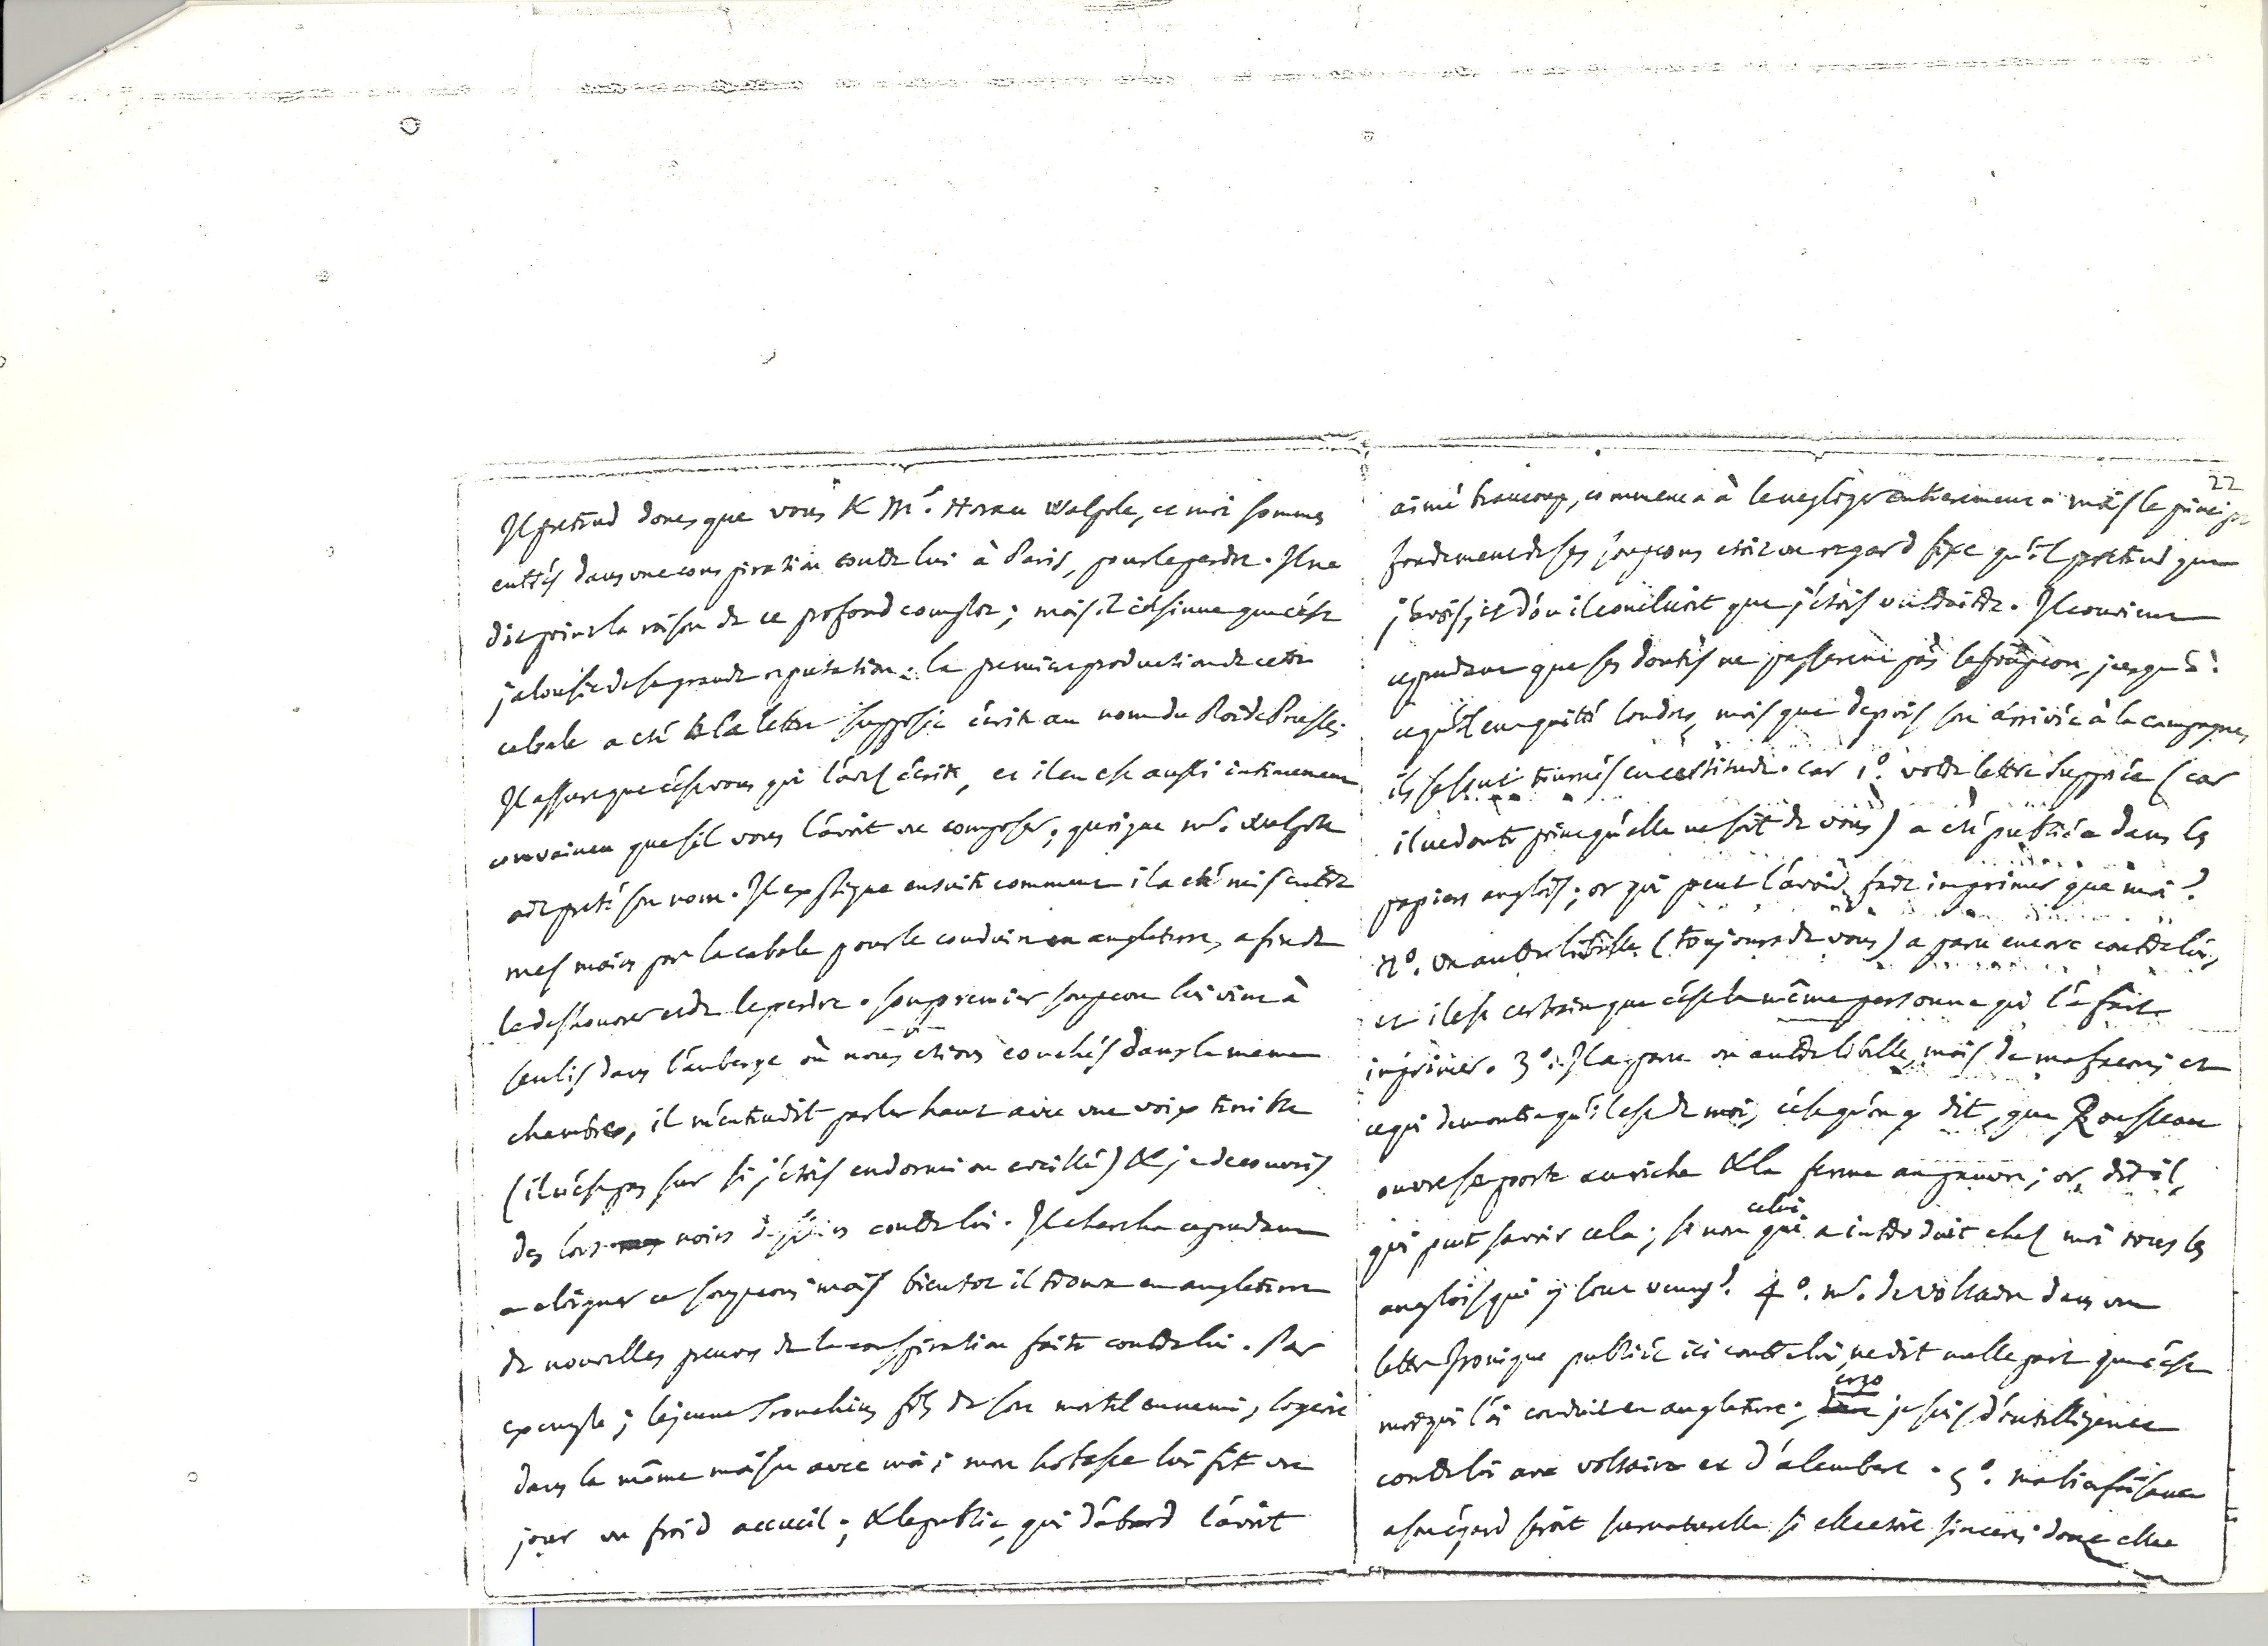 Il pretend donc que vous & Mr. Horace Walpole, et moi sommes
entrés dans une conspiration contre lui à Paris, pour le perdre. Il ne
dit point la raison de ce profond complot; mais il insinue que c'est
jalousie de sa grande reputation: la premiere production de cette
cabale a eté la lettre supposée écrite au nom du Roi de Prusse;
Il assure que c'est vous qui l'avez écrite, et il en est aussi intimement
convaincu que s'il vous l'avoit vu composer; quoique mr. Walpole
ait preté son nom. Il explique ensuite comment il a eté mis entre
mes mains par la cabale pour le conduire en angleterre, afin de
le deshonorer et de le perdre. son premier soupçon lui vint à
senlis dans l'auberge où nous etions couchés dans la meme
chambre, il m'entendit parler haut avec une voix terrible
(il n'est pas sur si j'étois endormi ou eveillé) & je decouvris
des lors noirs desseins contre lui. Il chercha cependant
a eloigner ce soupçon; mais bientot il trouva en angleterre
de nouvelles preuves de la conspiration faite contre lui. Par
exemple; le jeune Tronchin, fils de son mortel ennemi, logeoit
dans la même maison avec moi; mon hotesse lui fit un
jour un froid accueil; & le public, qui d'abord l'avoit
22
aimé beaucoup, commença à le negliger entierement. mais le principal
fondement de ses soupçons etoit un regard fixe qu'il pretend que
j'avois, et d'où il concluoit que j'étois un traitre. Il convient
cependant que ses doutes ne passerent pas le soupçon, jusqu'à
ce qu'il eut quitté londres, mais que depuis son arrivée à la campagne,
ils se sont tournés en certitude. car 1º. votre lettre supposée (car
il ne doute point qu'elle ne soit de vous) a eté publiée dans les
papiers anglois; or qui peut l'avoir fait imprimer que moi?
2º. un autre libelle (toujours de vous) a paru encore contre lui,
et il est certain que c'est la même personne qui l'a fait
imprimer. 3º. Il a paru un autre libelle, mais de ma façon; et
ce qui demontre qu'il est de moi, c'est qu'on y dit, que Rousseau
ouvre sa porte au riche & la ferme au pauvre; or, dit-il,
qui peut savoir cela; si non celui qui a introduit chez moi tous les
anglois qui y sont venus? 4º. mr. de Voltaire dans une
lettre Ironique publiée ici contre lui, ne dit nulle part que c'est
moi qui l'ai conduit en angleterre; ergo je suis d'intelligence
contre lui avec voltaire et d'alembert. 5º. ma bienfaisance
a son égard seroit surnaturelle si elle etoit sincere; donc elle